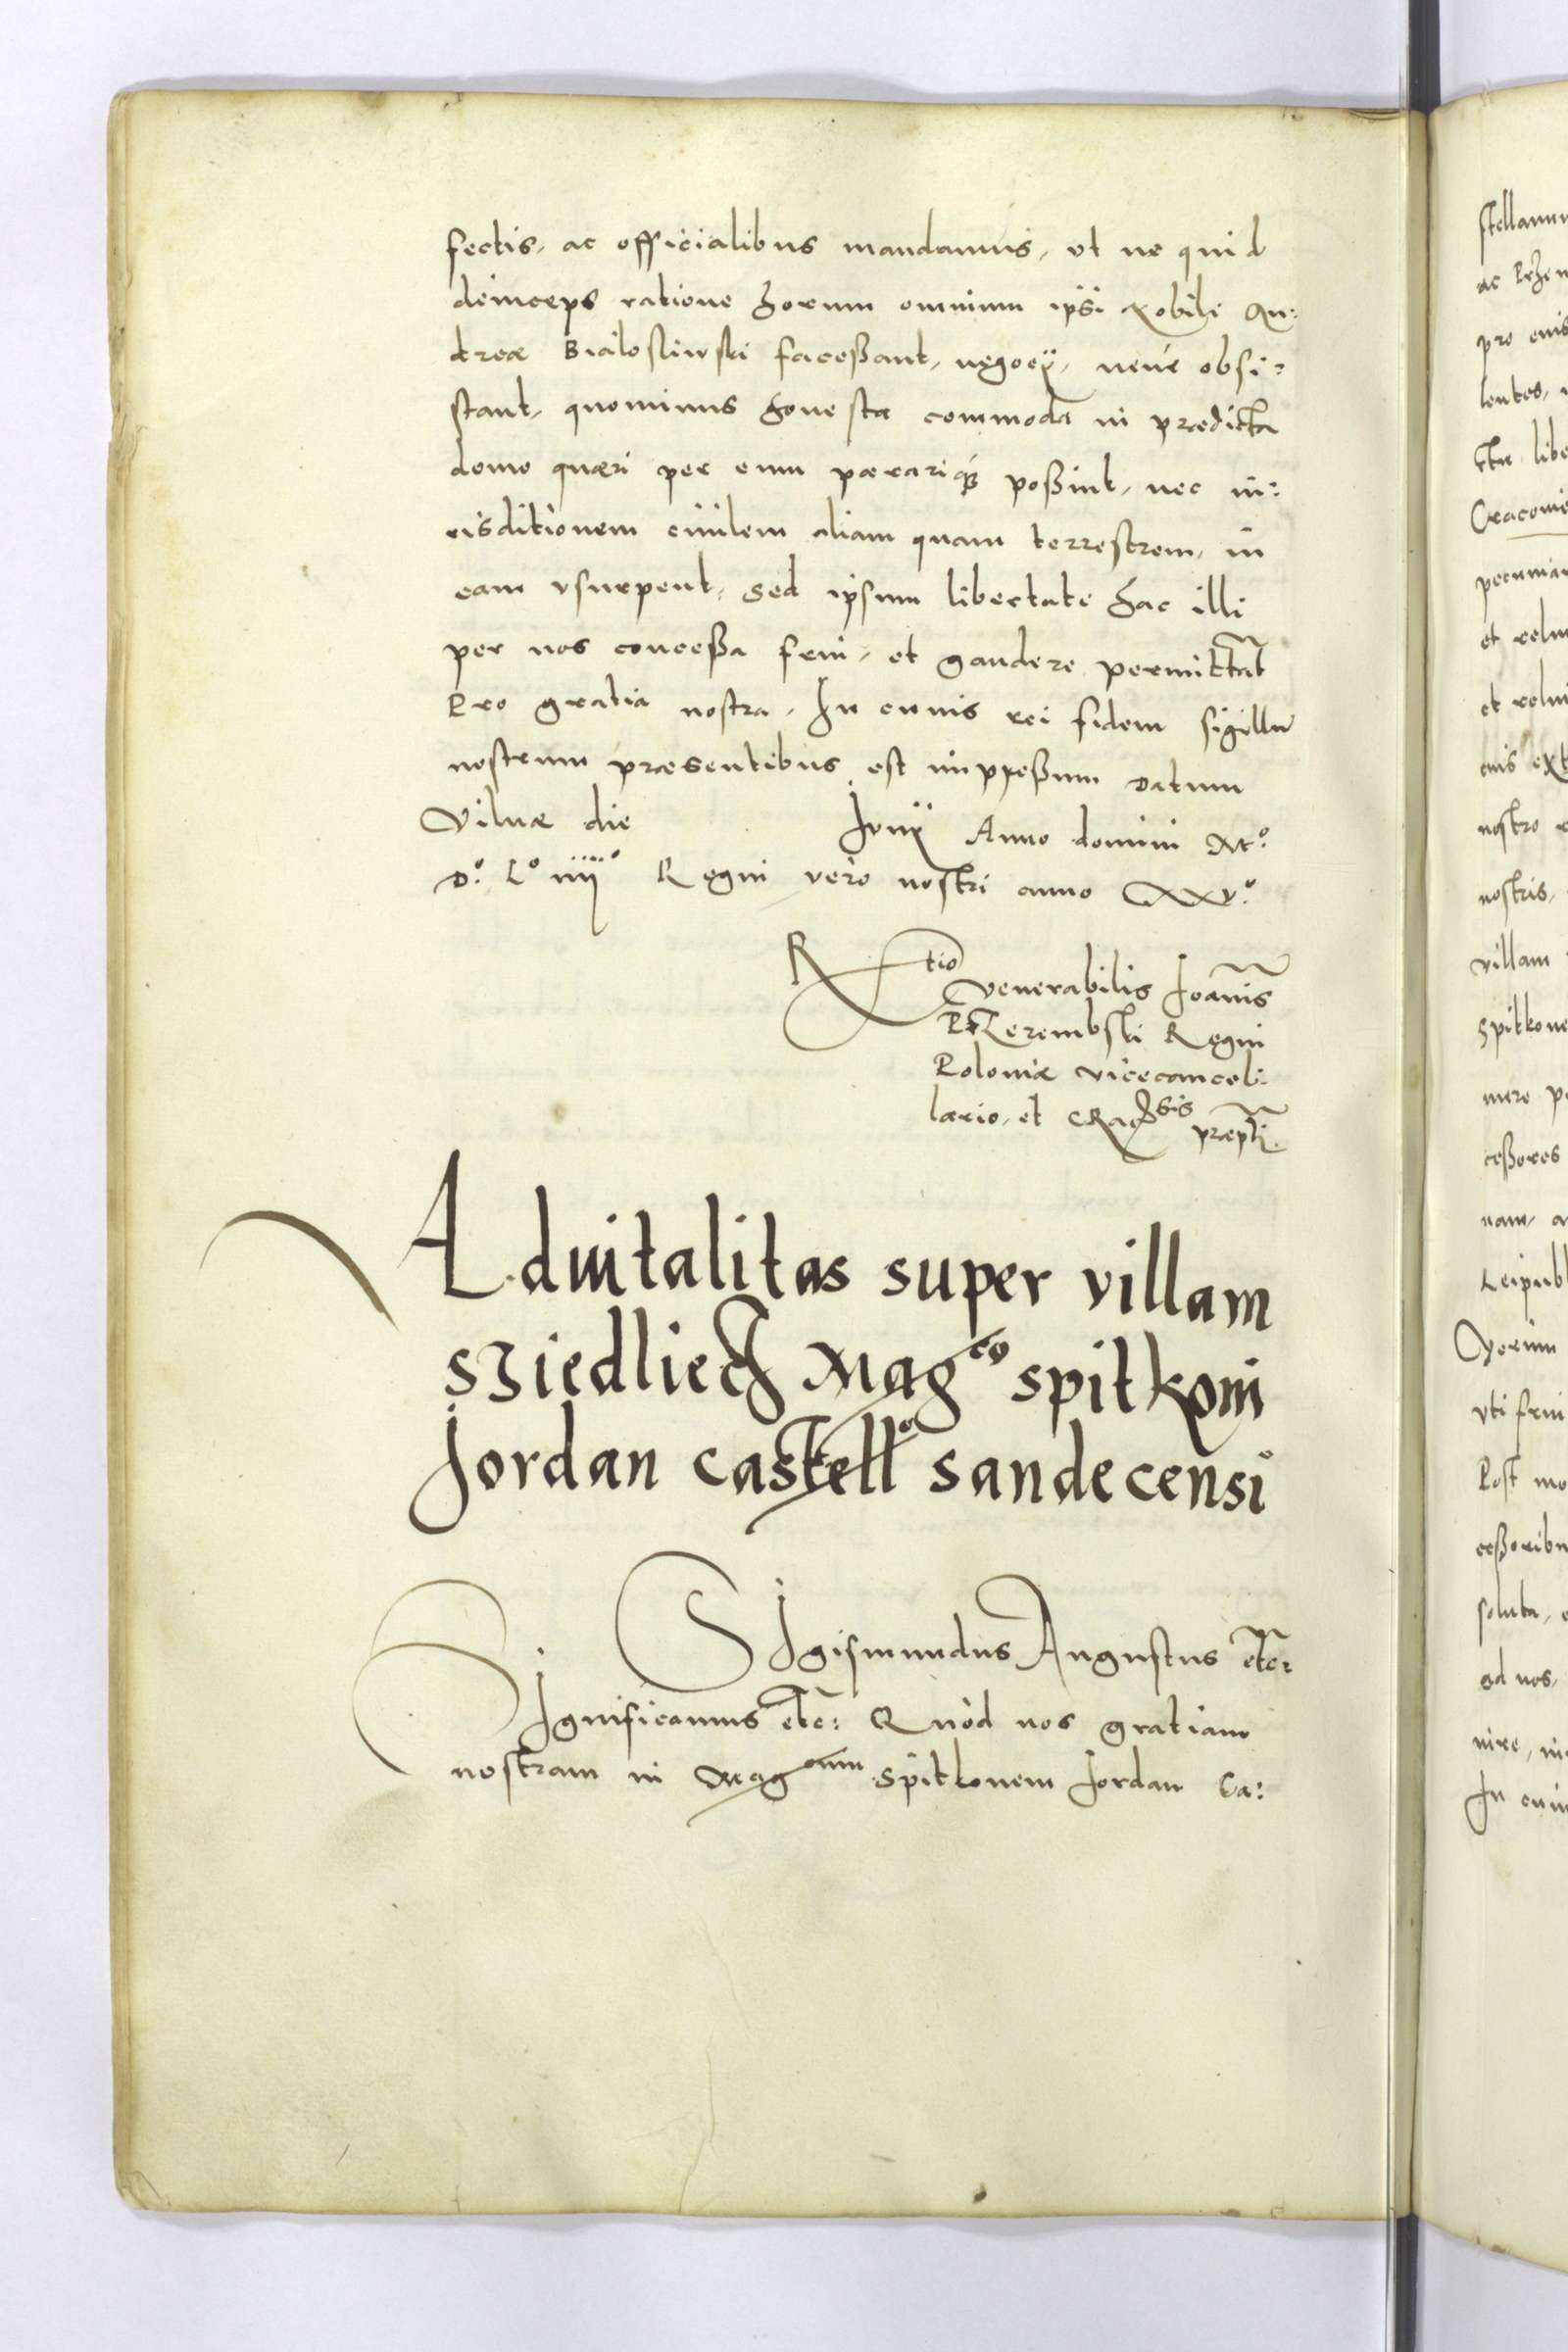 fectis, ac officialibus mandamus, ut ne quid
deinceps ratione horum omnium ipsi Nobili An:
dreæ Bialosliwski faceßant, negocy, neué obsi:
stant, quominus honesta commoda in prædicta
domo quæri per eum parariq́ꝫ poßint, nec iu:
risditionem ciuilem aliam quam terrestrem, in
eam vsurpent, sed ipsum libertate hac illi
per nos conceßa frui, et gaudere permittāt
Pro gratia nostra. In cuius rei fidem sigillū
nostrum præsentibus est impreßum Datum
Vilnæ die Iunÿ Anno domini Mº.
Dº. Lº iiiiº Regni vero nostri anno XXVº.
Rtio
Venerabilis Ioānis
Przerembski Regni
Poloniæ vicecancel:
lario, et Crach̄sis præpti.
Aduitalitas super villam
Sziedliecz Magco Spitkoni
Jordan castello sandecensi
SIgismundus Augustus etc:
SIgnificamus etc: Quòd nos gratiam
nostram in Magcum Spitkonem Jordan Ca:
stellanum
pro
villam
Spitkone
ceßores
nam,
Post mo
ceßoribu
soluta,
ad nos,
nire,
In cuiu